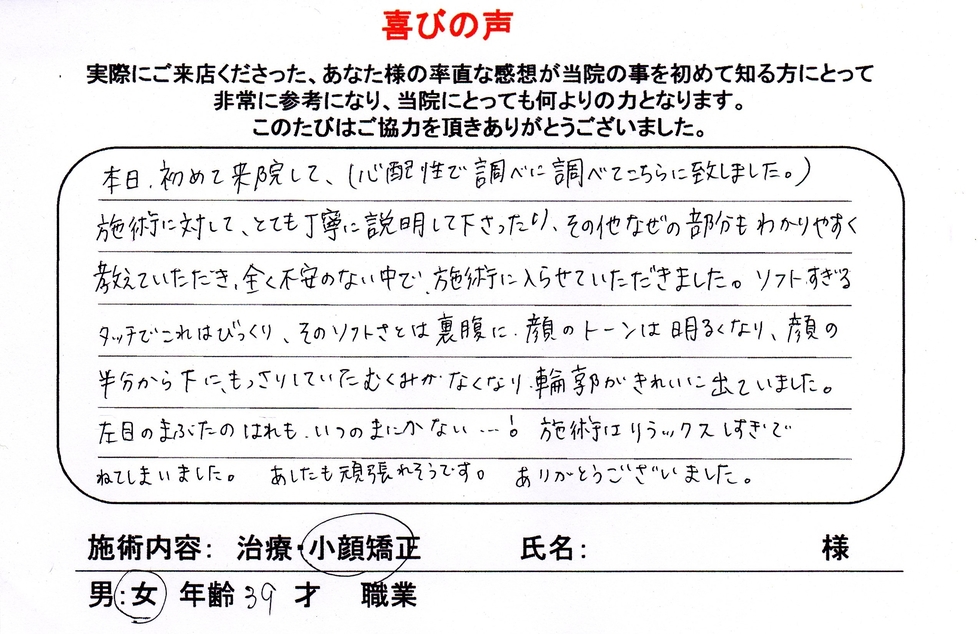 喜びの声
実際にご来店くださった、あなた様の率直な感想が当院の事を初めて知る方にとって
非常に参考になり、当院にとっても何よりの力となります。
このたびはご協力を頂きありがとうございました。
本日、初めて来院して、(心配性で調べに調べてこちらに致しました。)
施術に対して、とても丁寧に説明して下さったり、その他なぜの部分もわかりやすく
教えていただき、全く不安のない中で、施術に入らせていただきました。ソフトすぎる
タッチでこれはびっくり、そのソフトさとは裏腹に、顔のトーンは明るくなり、顔の
半分から下に、もっさりしていたむくみがなくなり、輪郭がきれいに出ていました。
左目のまぶたのはれも、いつのまにかない…! 施術はリラックスしすぎて
ねてしまいました。 あしたも頑張れそうです。 ありがとうございました。
施術内容： 治療・小顔矯正 氏名： 様
男：女 年齢 39 才 職業